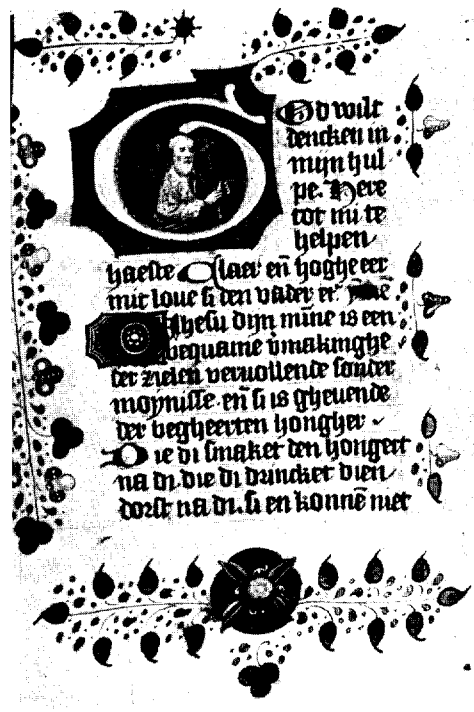 God wilt
dencken in
mijn hul
pe. Here
tot mi te
helpen
haeste Glaer en̄ hogheer
mit loue si den vader en̄
O Ihesu dijn mīne is een
bequame v̄makinghe
der zielen veruollende sonder
moynisse. en̄ si is gheuende
der begheerten hongher
Die di smaket den hongert
na di. die di drincket dien
dorst na di. si en konnē niet